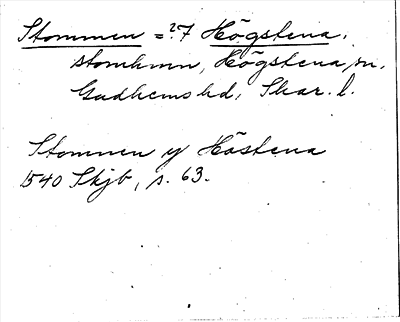 Stommen =? 7 Högstena,
stomhmn, Högstena sn,
Gudhems hd, Skar. l.
Stomnen y Höstena
1540 Skjb, s. 63.